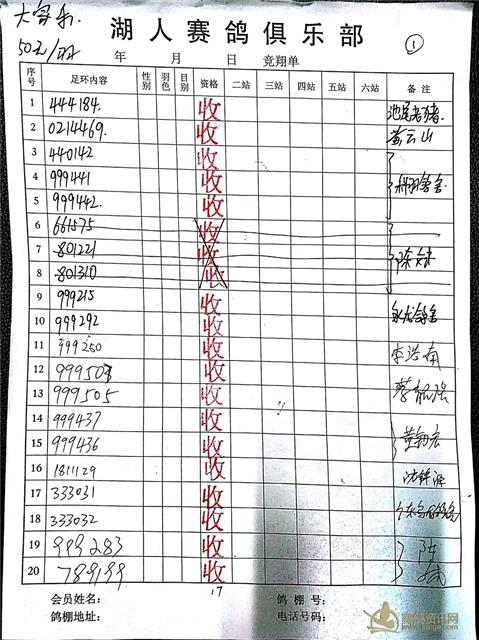 大寄乐.
湖人赛鸽俱乐部
①
50元/羽
年 月 日 竞翔单
序号 足环内容 性别 羽色 目别 资格 二站 三站 四站 五站 六站 备注
1 444184. 收
2 0214469. 收 黄云山
3 440142 收
4 999441 收
5 999442. 收
6 661575 收
7 801221 收
8 801310 收
9 999215 收
10 999292 收
11 999250 收 李浩南
12 999503 收
13 999505 收
14 999437 收
15 999436 收
16 1811129 收
17 333031 收
18 333032 收
19 999283 收
20 789199 收
17
会员姓名: 鸽棚号:
鸽棚地址: 电话号码:
赛鸽资讯网